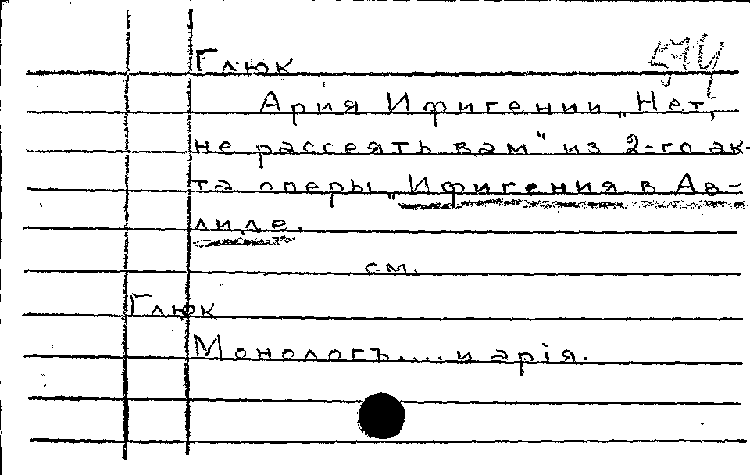 Глюк
Ария Ифигении „Нет,
не рассеять вам" из 2-го ак-
та оперы „Ифигения в Ав-
лиде.
см.
Глюк
Монологъ.... и арія.